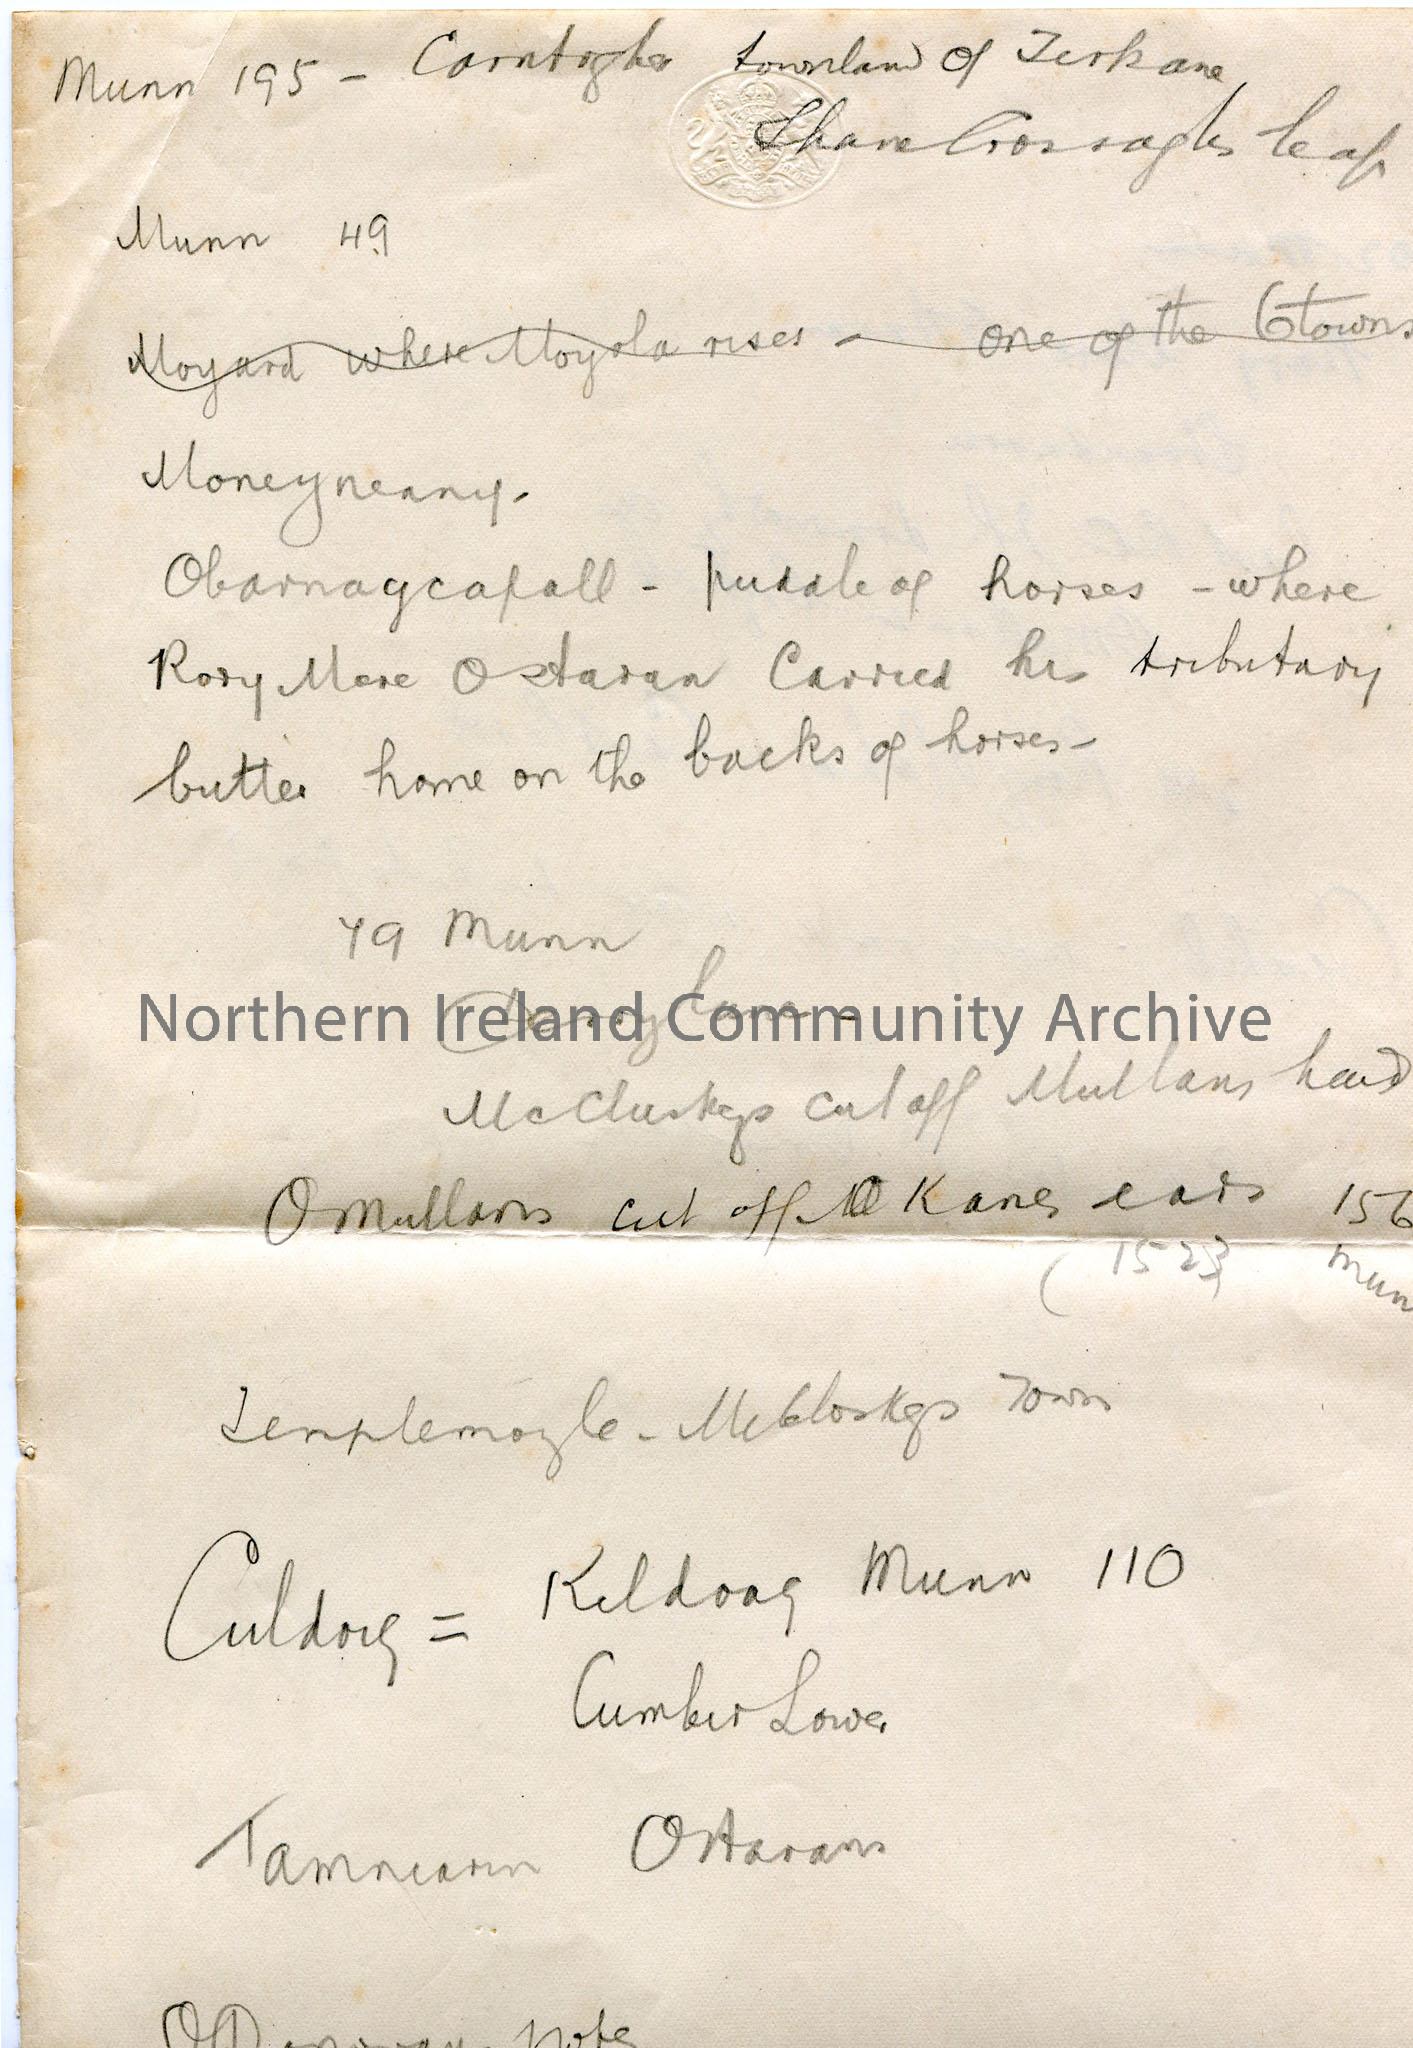 Munn 195 - Carntogher townland of Terkane
Shane Crossaghs leap
Munn 49
Moyard where Moyola rises - one of the 6 towns
Moneyneany.
Obarnagcapall - puddle of horses - where
Rory Mere O Haran Carried his tributary
butter home on the backs of horses -
79 Munn
Northern Ireland Community Archive
McCluskeys cut off Mullans head
O Mullans cut off O Kanes ears 156
(1523) Mun
Templemoyle - McCloskeys Town
Culdoig = Kildoag Munn 110
Cumber Lower
Tamniarin O Harans
O Donovan Notes